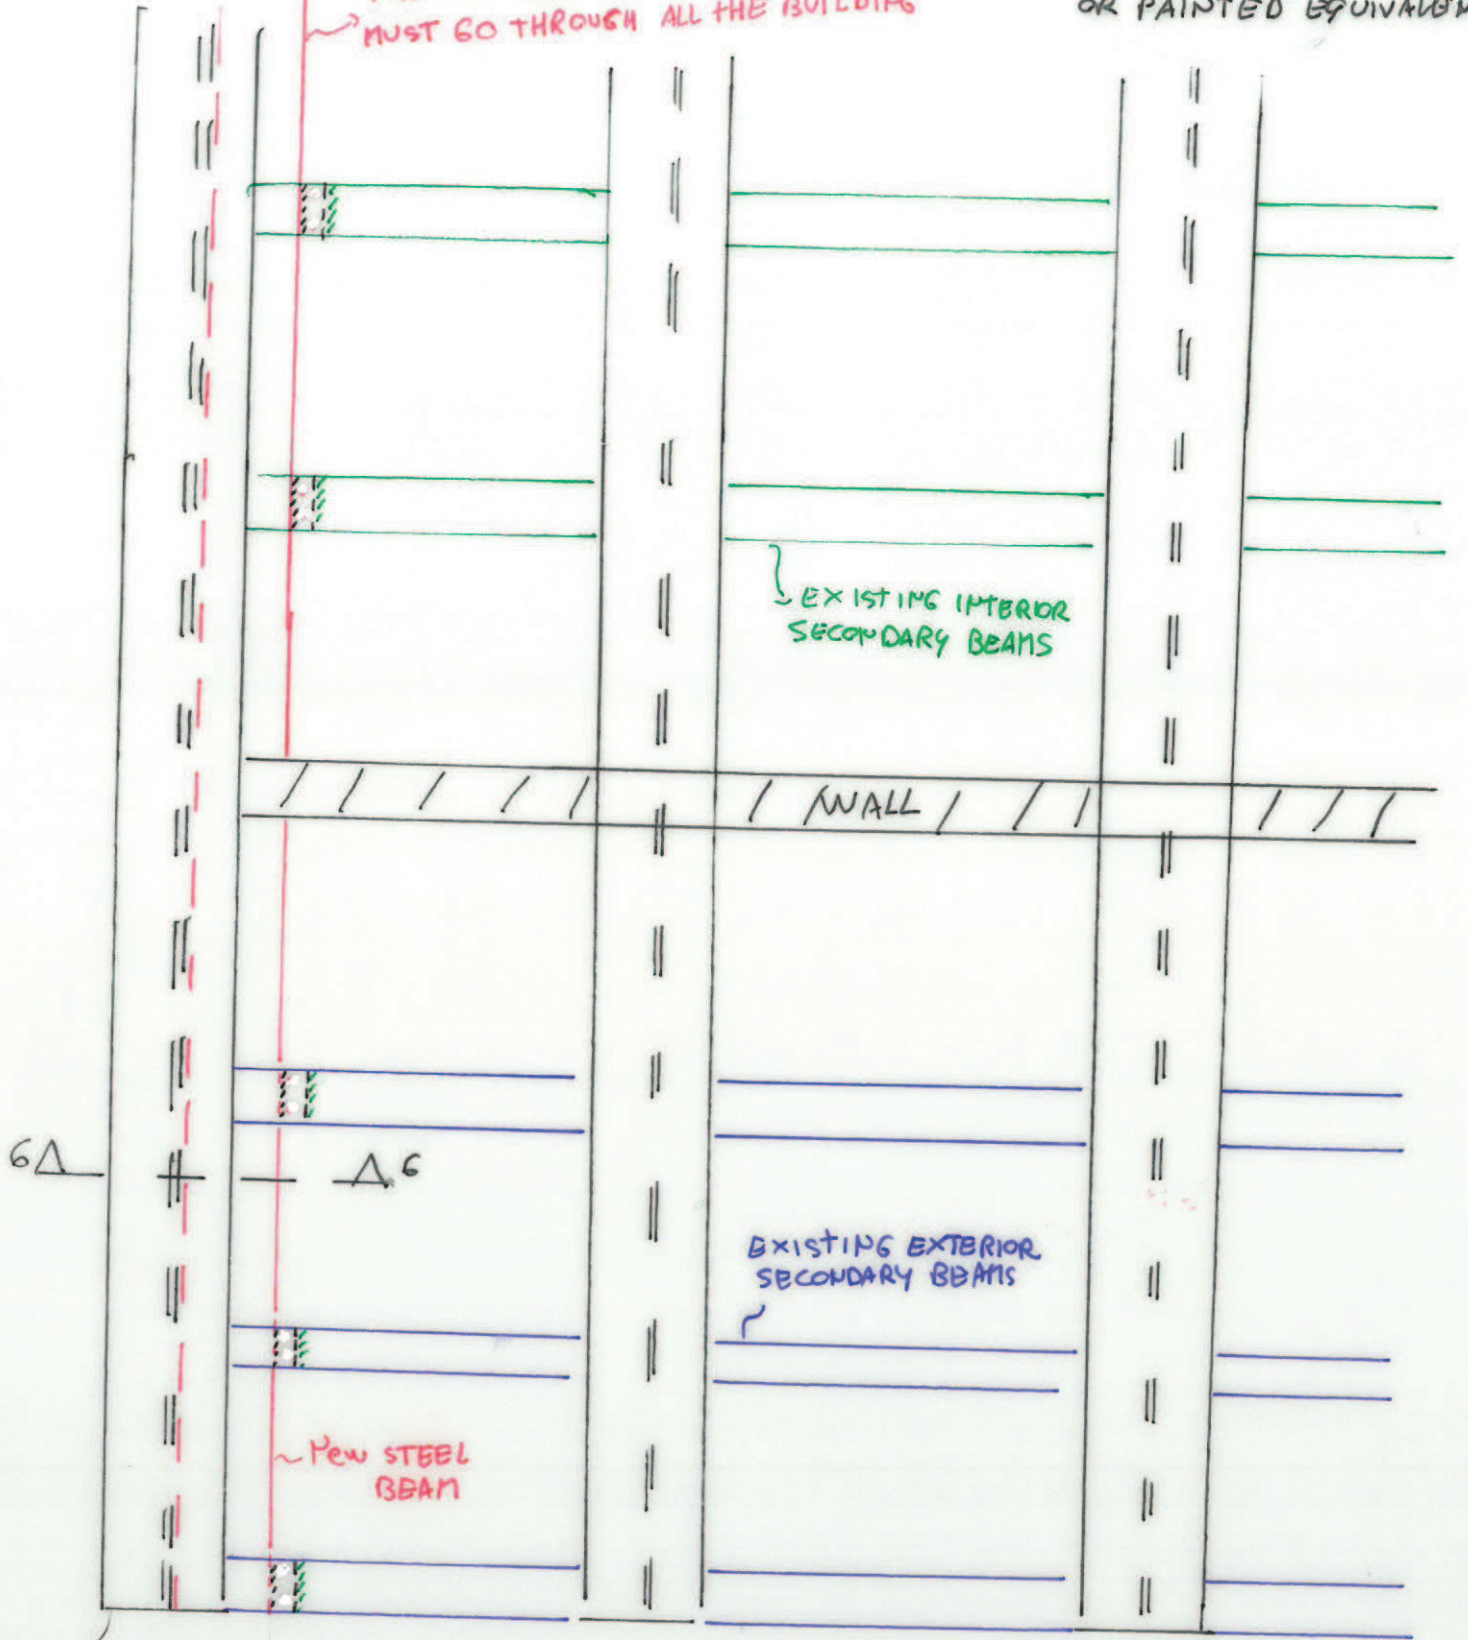 MUST GO THROUGH ALL THE BUILDING
OR PAINTED
EXISTING INTERIOR
SECONDARY BEAMS
WALL
6Δ
Δ6
EXISTING EXTERIOR
SECONDARY BEAMS
NEW STEEL
BEAM